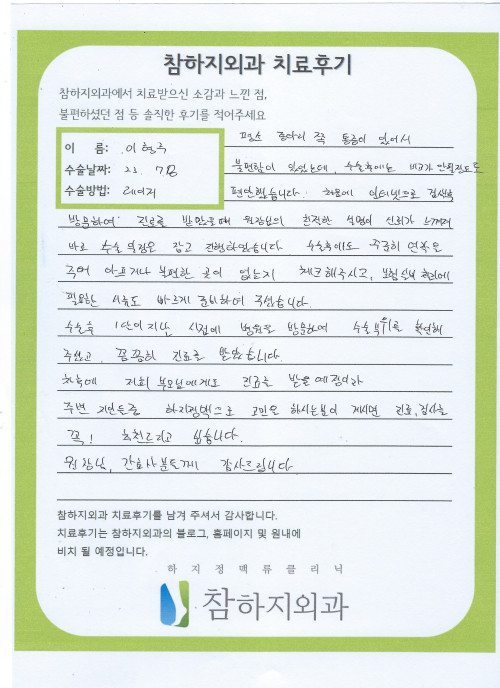 참하지외과 치료후기
참하지외과에서 치료받으신 소감과 느낀 점,
불편하셨던 점 등 솔직한 후기를 적어주세요
이 름: 이현주
수술날짜: 23. 7월
수술방법: 레이저
평소 종아리 쪽 통증이 있어서
불편함이 있었는데, 수술후에는 비교가 안될정도로
편안했습니다. 처음에 인터넷으로 검색후
방문하여 진료를 받았을때 원장님의 친절한 설명이 신뢰가 느껴져
바로 수술 일정을 잡고 진행하였습니다 수술후에도 꾸준히 연락을
주어 아프거나 불편한 곳이 없는지 체크해주시고, 보험실비 청구에
필요한 서류도 빠르게 준비하여 주셨습니다.
수술후 1년이 지난 시점에 병원을 방문하여 수술부위를 확인해
주셨고, 꼼꼼히 진료를 받았습니다.
차후에 저희 부모님에게도 진료를 받을 예정이라
주변 지인들중 하지정맥으로 고민을 하시는분이 계시면 진료, 검사를
꼭! 추천드리고 싶습니다.
원장님, 간호사분들께 감사드립니다
참하지외과 치료후기를 남겨 주셔서 감사합니다.
치료후기는 참하지외과의 블로그, 홈페이지 및 원내에
비치 될 예정입니다.
하지정맥류클리닉
참하지외과